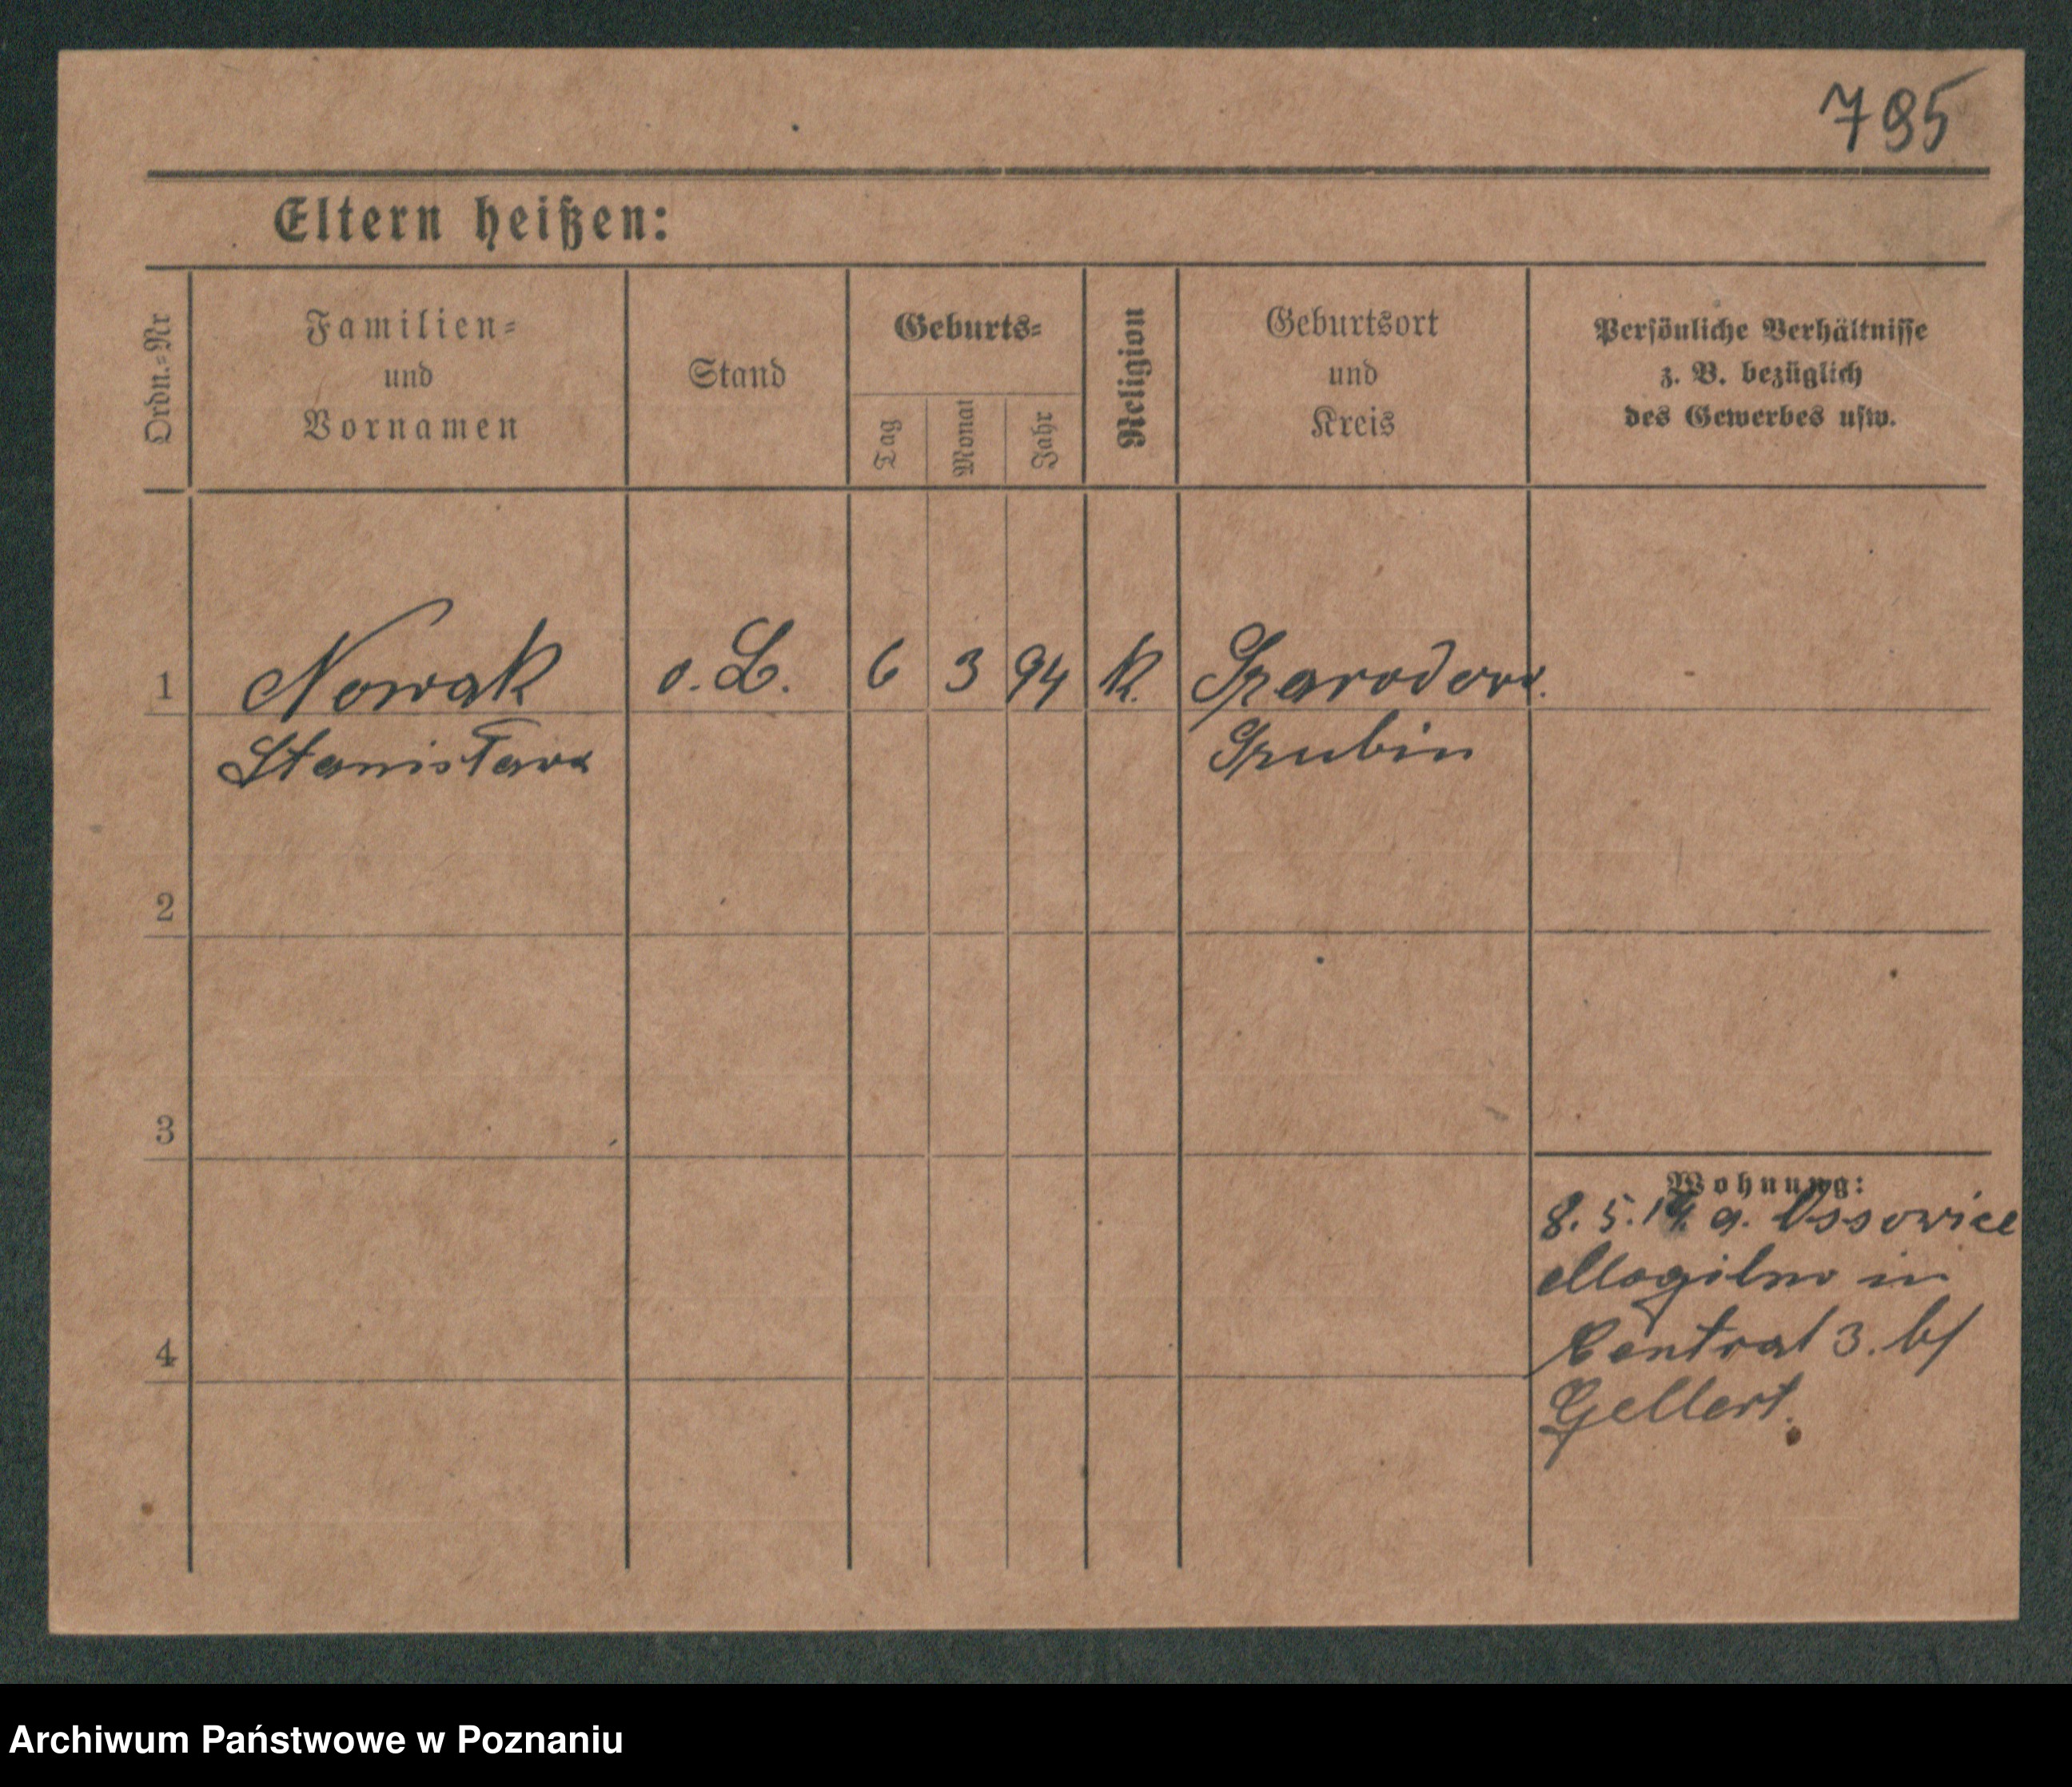 795
Eltern heißen:
Ordn.=Nr
Familien=
und
Vornamen
Stand
Geburts=
Tag
Monat
Jahr
Religion
Geburtsort
und
Kreis
Persönliche Verhältnisse
z. B. bezüglich
des Gewerbes usw.
1
Nowak o. L. 6 3 94 k.
Stanisława
Szubin
2
3
Wohnung:
8. 5. 14. a. Ossowice
Mogilno in
4
Central 3. b/
Gellert.
Archiwum Państwowe w Poznaniu